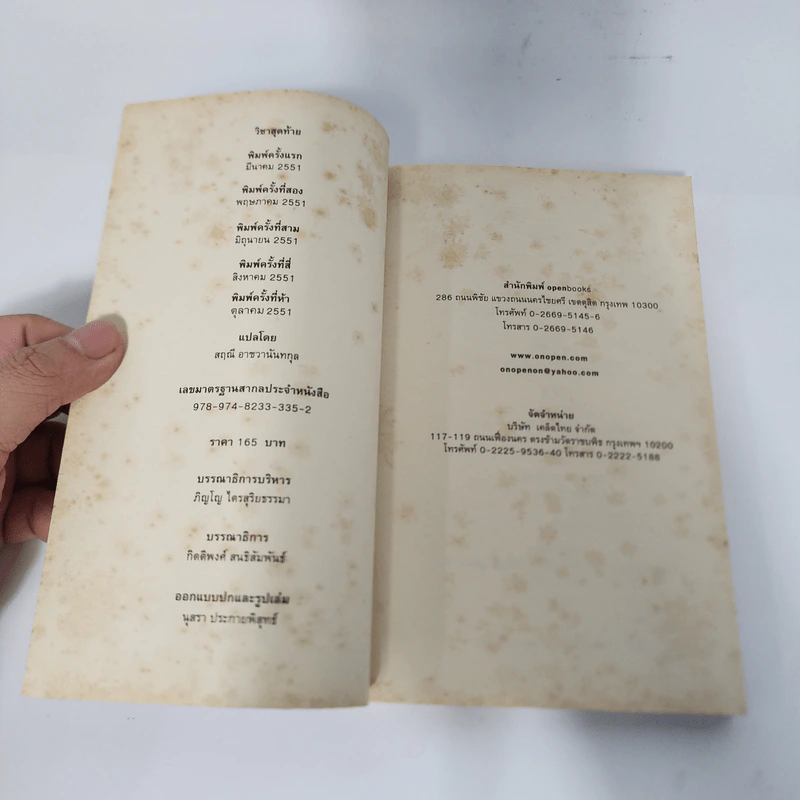 วิชาสุดท้าย
พิมพ์ครั้งแรก
มีนาคม 2551
พิมพ์ครั้งที่สอง
พฤษภาคม 2551
พิมพ์ครั้งที่สาม
มิถุนายน 2551
พิมพ์ครั้งที่สี่
สิงหาคม 2551
พิมพ์ครั้งที่ห้า
ตุลาคม 2551
แปลโดย
สฤณี อาชวานันทกุล
เลขมาตรฐานสากลประจำหนังสือ
978-974-8233-335-2
ราคา 165 บาท
บรรณาธิการบริหาร
ภิญโญ ไตรสุริยธรรมา
บรรณาธิการ
กิตติพงศ์ สนธิสัมพันธ์
ออกแบบปกและรูปเล่ม
นุสรา ประกายพิสุทธิ์
สำนักพิมพ์ openbooks
286 ถนนพิชัย แขวงถนนนครไชยศรี เขตดุสิต กรุงเทพ 10300
โทรศัพท์ 0-2669-5145-6
โทรสาร 0-2669-5146
www.onopen.com
onopenon@yahoo.com
จัดจำหน่าย
บริษัท เคล็ดไทย จำกัด
117-119 ถนนเฟื่องนคร ตรงข้ามวัดราชบพิธ กรุงเทพฯ 10200
โทรศัพท์ 0-2225-9536-40 โทรสาร 0-2222-5188